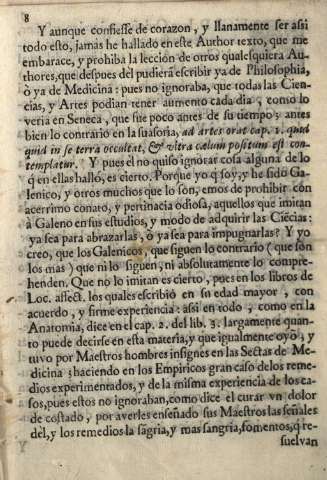 8
Y aunque confiesse de corazon, y llanamente ser assi
todo esto, jamás he hallado en este Author texto, que me
embarace, y prohiba la leccion de otros qualesquiera Au-
thores, que despues dèl pudiera escribir ya de Philosophia,
ò ya de Medicina: pues no ignoraba, que todas las Cien-
cias, y Artes podian tener aumento cada dia, como lo
veria en Seneca, que fue poco antes de su tiempo; antes
bien lo contrario en la suasoria, ad artes orat cap. 1. quid
quid in se terra occultat, & ultra cælum positum est con-
templatur. Y pues èl no quiso ignorar cosa alguna de lo
q̃ en ellas hallò, es cierto. Porque yo q̃ soy, y he sido Ga-
lenico, y otros muchos que lo son, emos de prohibir con
acerrimo conato, y pertinacia odiosa, aquellos que imitan
à Galeno en sus estudios, y modo de adquirir las Ciẽcias:
ya sea para abrazarlas, ò ya sea para impugnarlas? Y yo
creo, que los Galenicos, que siguen lo contrario (que son
los mas) que ni lo siguen, ni absolutamente lo compre-
henden. Que no lo imitan es cierto, pues en los libros de
Loc. affect. los quales escribiò en su edad mayor, con
acuerdo, y firme experiencia: assi en todo, como en la
Anatomia, dice en el cap. 2. del lib. 3. largamente quan-
to puede decirse en esta materia, y que igualmente oyò, y
tuvo por Maestros hombres insignes en las Sectas de Me-
dicina; haciendo en los Empiricos gran caso de los reme-
dios experimentados, y de la misma experiencia de los ca-
sos, pues estos no ignoraban, como dice el curar vn dolor
de costado, por averles enseñado sus Maestros las señales
dèl, y los remedios la sãgria, y mas sangria, fomentos, q̃ re-
suelvan